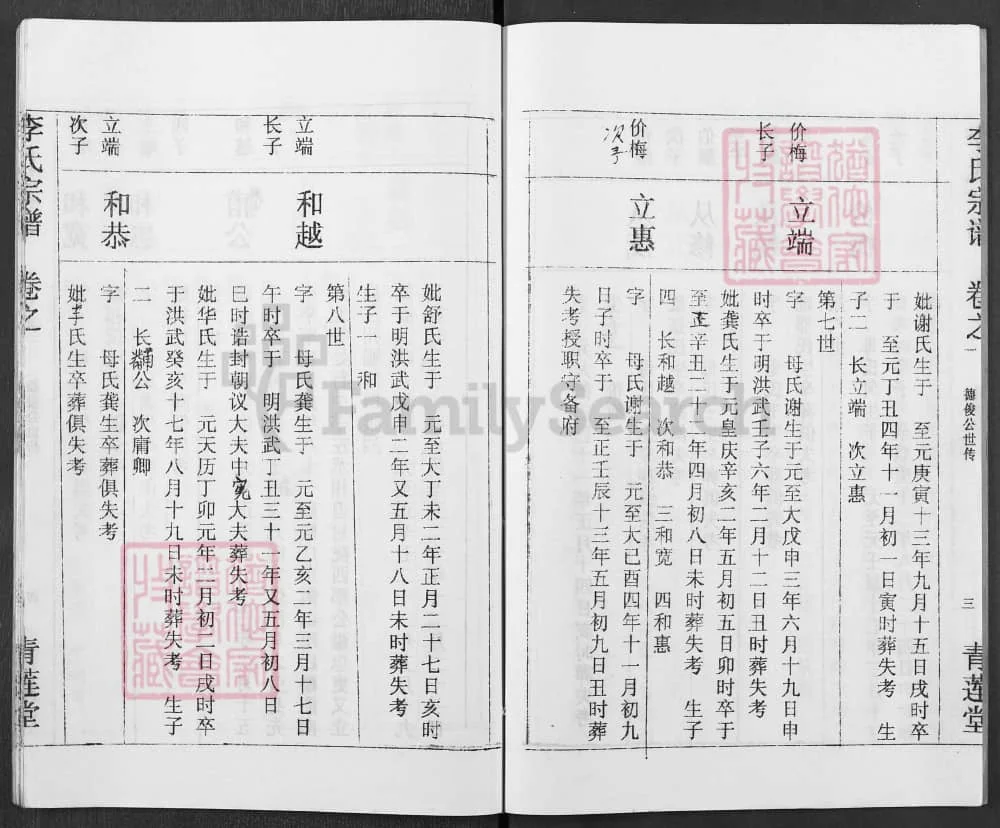 李氏宗谱 卷之一 德俊公世传 三 青莲堂
妣谢氏生于 至元庚寅十三年九月十五日戌时卒
于 至元丁丑四年十一月初一日寅时葬失考 生
子二 长立端 次立惠
第七世
价梅
长子
立端
字 母氏谢生于元至大戊申三年六月十九日申
时卒于明洪武壬子六年二月十二日丑时葬失考
妣龚氏生于元皇庆辛亥二年五月初五日卯时卒于
至正辛丑二十一年四月初八日未时葬失考 生子
四 长和越 次和恭 三和宽 四和惠
价梅
次子
立惠
字 母氏谢生于 元至大己酉四年十一月初九
日子时卒于 至正壬辰十三年五月初九日丑时葬
失考授职守备府
妣舒氏生于 元至大丁未二年正月二十七日亥时
卒于明洪武戊申二年又五月十八日未时葬失考
生子一 和
第八世
立端
长子
和越
字 母氏龚生于 元至元乙亥二年三月十七日
午时卒于 明洪武丁丑三十一年又五月初八日
巳时诰封朝议大夫中宪大夫葬失考
妣华氏生于 元天历丁卯元年二月初二日戌时卒
于洪武癸亥十七年八月十九日未时葬失考 生子
二 长公 次庸卿
立端
次子
和恭
字 母氏龚生卒葬俱失考
妣李氏生卒葬俱失考
李氏宗谱 卷之一 青莲堂
FamilySearch